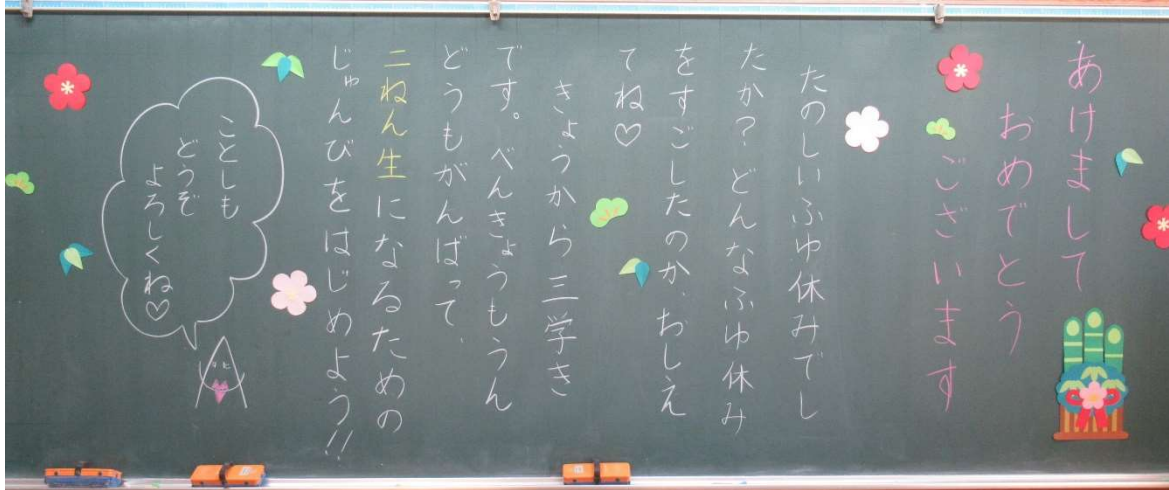 あけまして
おめでとう
ございます
たのしいふゆ休みでし
たか？どんなふゆ休み
をすごしたのか、おしえ
てね♡
きょうから三学き
です。べんきょうもうん
どうもがんばって、
二ねん生になるための
じゅんびをはじめよう!!
ことしも
どうぞ
よろしくね♡